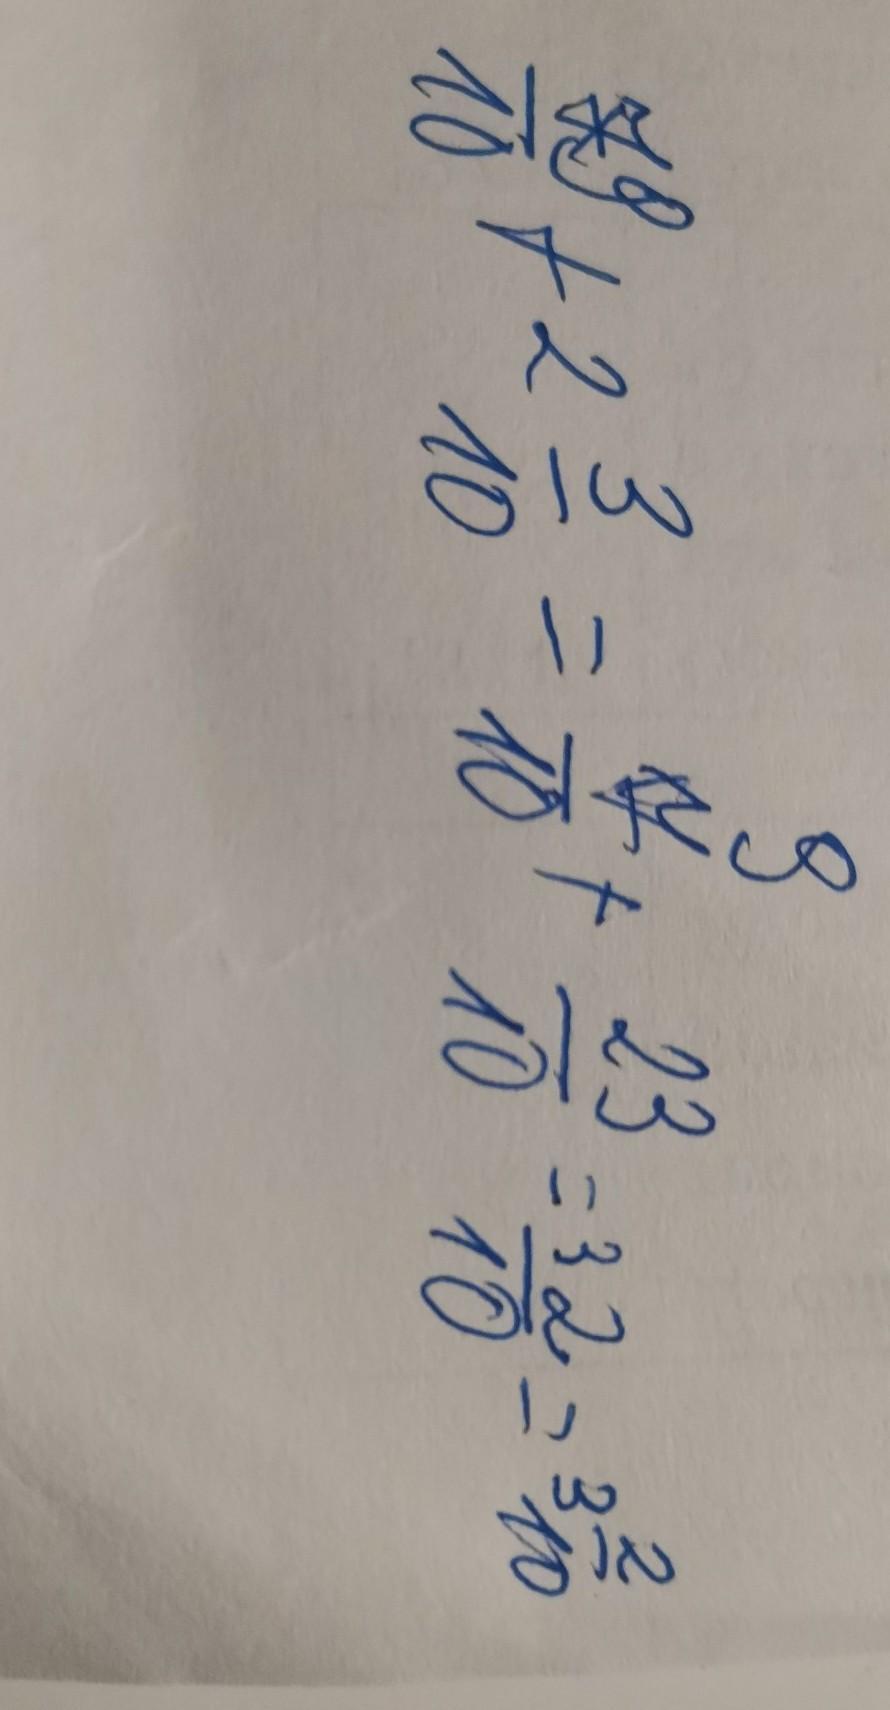 9/10 + 2 3/10 = 9/10 + 23/10 = 32/10 = 3 2/10